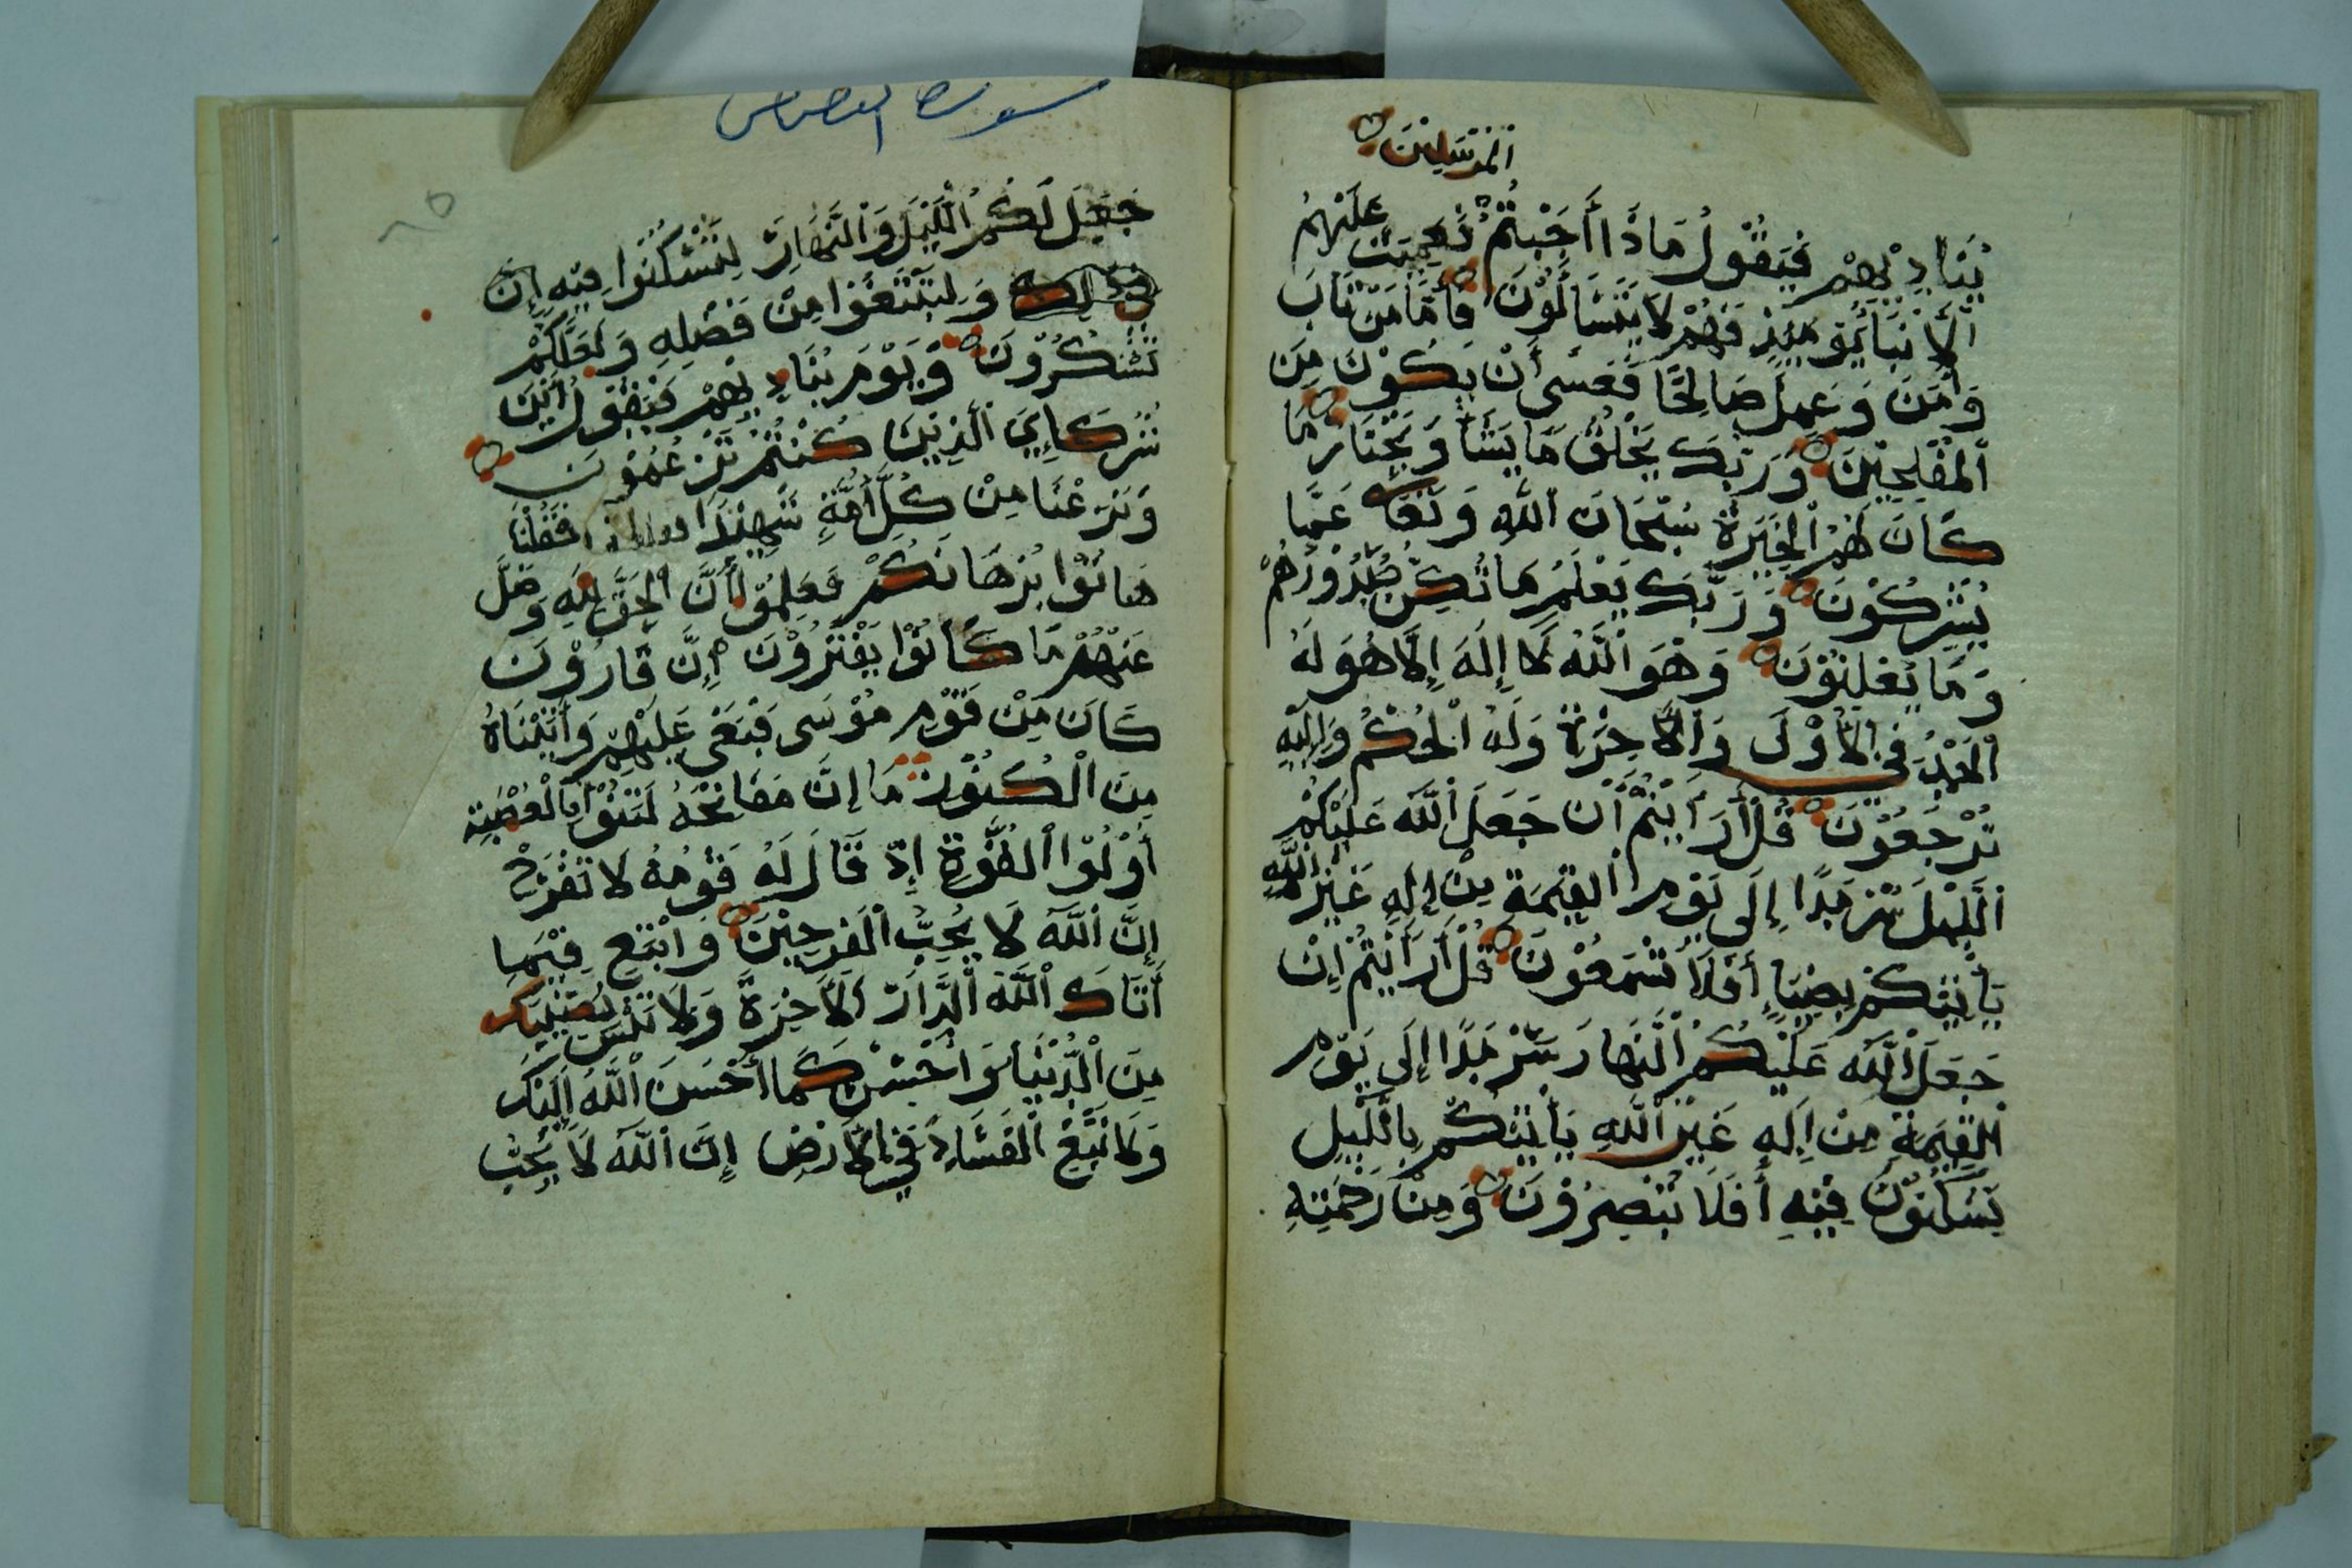 المرسلين
يناديهم فيقول ماذا أجبتم فعميت عليهم
الأنبا يومئذ فهم لا يتسالون فأما من تاب
وآمن وعمل صالحا فعسى أن يكون من
المفلحين وربك يخلق ما يشأ ويختار ما
كان لهم الخيرة سبحان الله وتعا عما
يشركون وربك يعلم ما تكن صدورهم
وما يعلنون وهو الله لا إله إلا هو له
الحمد في الأولى والآخرة وله الحكم وإليه
ترجعون قل أرأيتم أن جعل الله عليكم
الليل سرمدا إلى يوم القيمة من إله غير الله
يأتيكم بضيا أفلا تسمعون قل أرأيتم إن
جعل الله عليكم النهار سرمدا إلى يوم
القيمة من إله غير الله يأتيكم بالليل
تسكنون فيه أفلا تبصرون ومن رحمته
سورة القصص
٨٥
جعل لكم الليل والنهار لتسكنوا فيه إن
ولتبتغوا من فضله ولعلكم
تشكرون ويوم يناديهم فيقول أين
شركاءي الذين كنتم تزعمون
ونزعنا من كل أمة شهيدا فقلنا
هاتوا برهانكم فعلموا أن الحق لله وضل
عنهم ما كانوا يفترون إن قارون
كان من قوم موسى فبغى عليهم وآتيناه
من الكنوز ما إن مفاتحه لتنوأ بالعصبة
أولوا القوة إذ قال له قومه لا تفرح
إن الله لا يحب الفرحين وابتغ فيما
أتاك الله الدار الآخرة ولا تنس نصيبك
من الدنيا وأحسن كما أحسن الله إليك
ولا تبغ الفساد في الأرض إن الله لا يحب